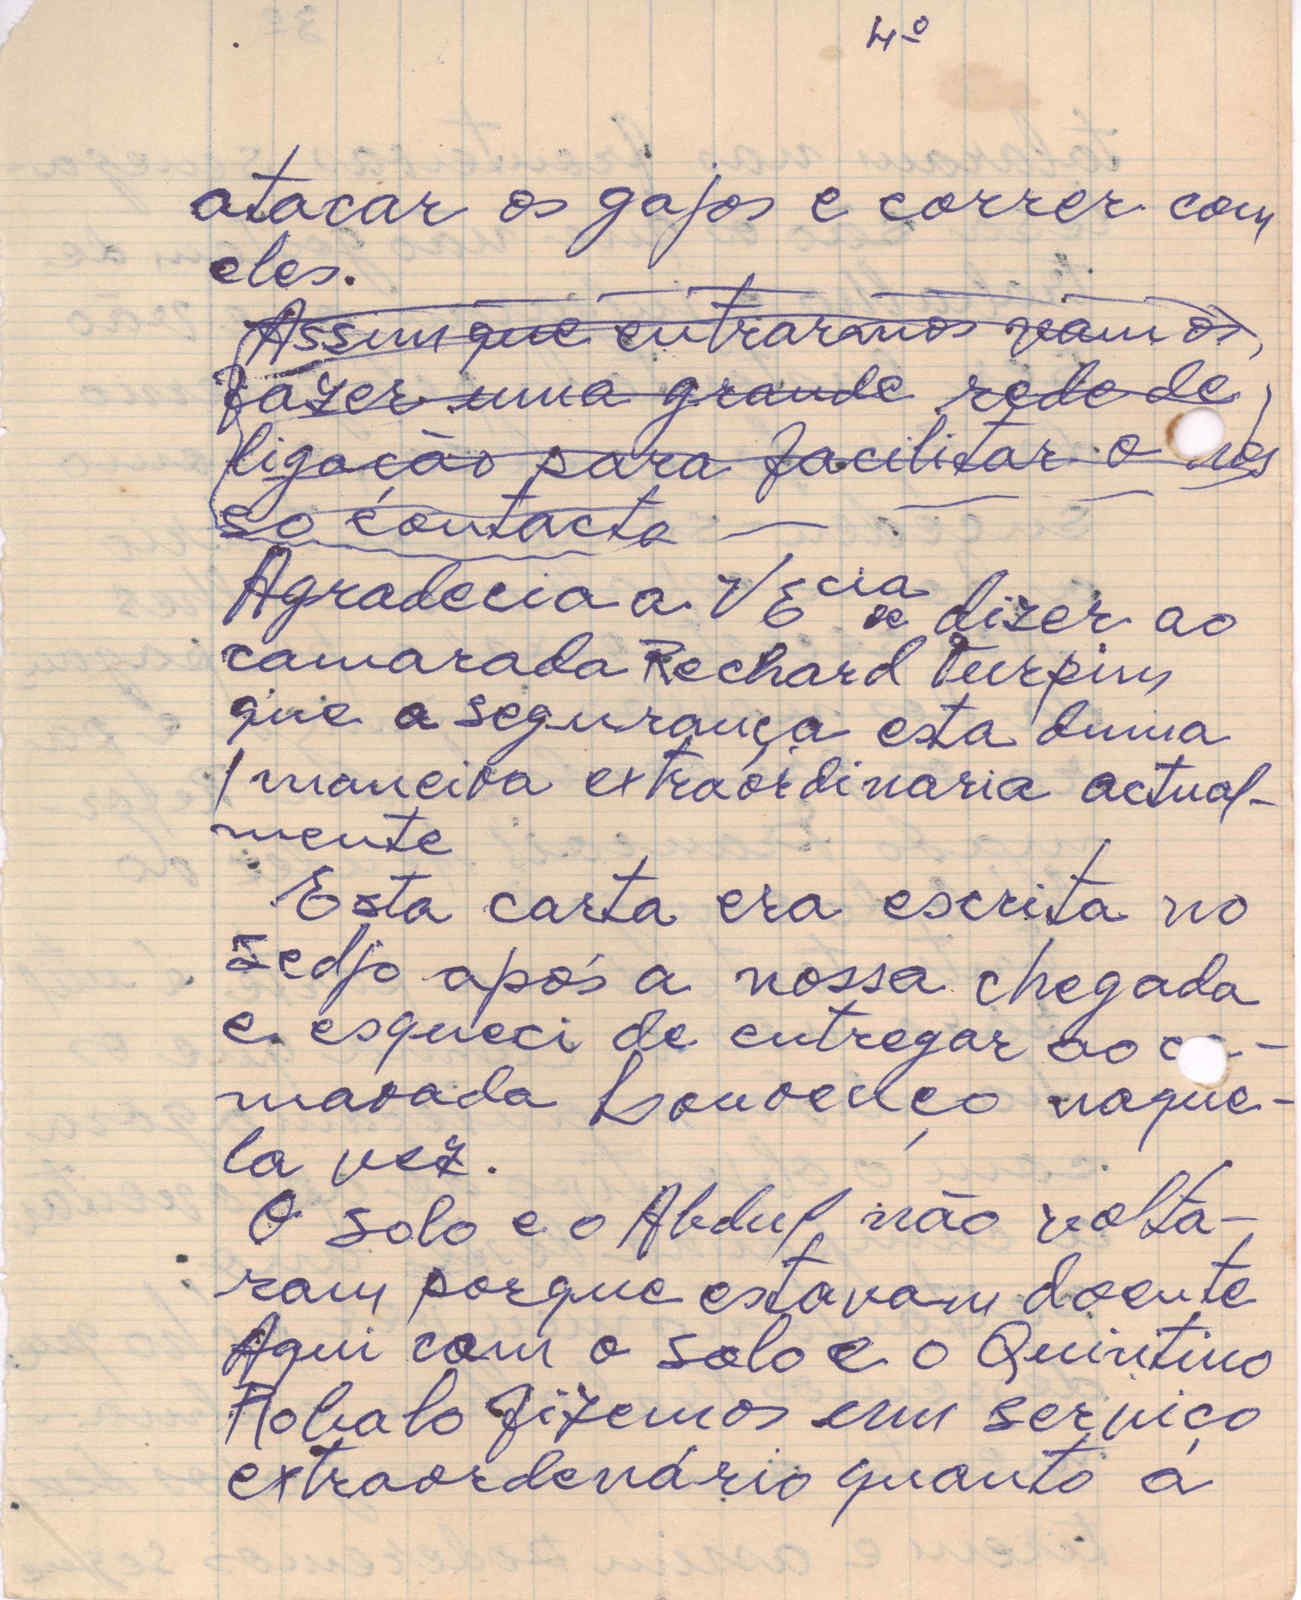 4º
atacar os gajos e correr com
eles.
Assim que entrarmos vamos,
fazer uma grande rede de
ligação para facilitar o nos
so contacto
Agradecia a V Ecia de dizer ao
camarada Rechard Turpin
que a segurança esta duma
maneira extraordinaria actual-
mente
Esta carta era escrita no
Sedjo após a nossa chegada
e esqueci de entregar ao ca-
marada Lourenço naque-
la vez.
O solo e o Abdul não volta-
ram porque estavam doente
Aqui com o solo e o Quintino
Robalo fizemos um serviço
extraordenário quanto a